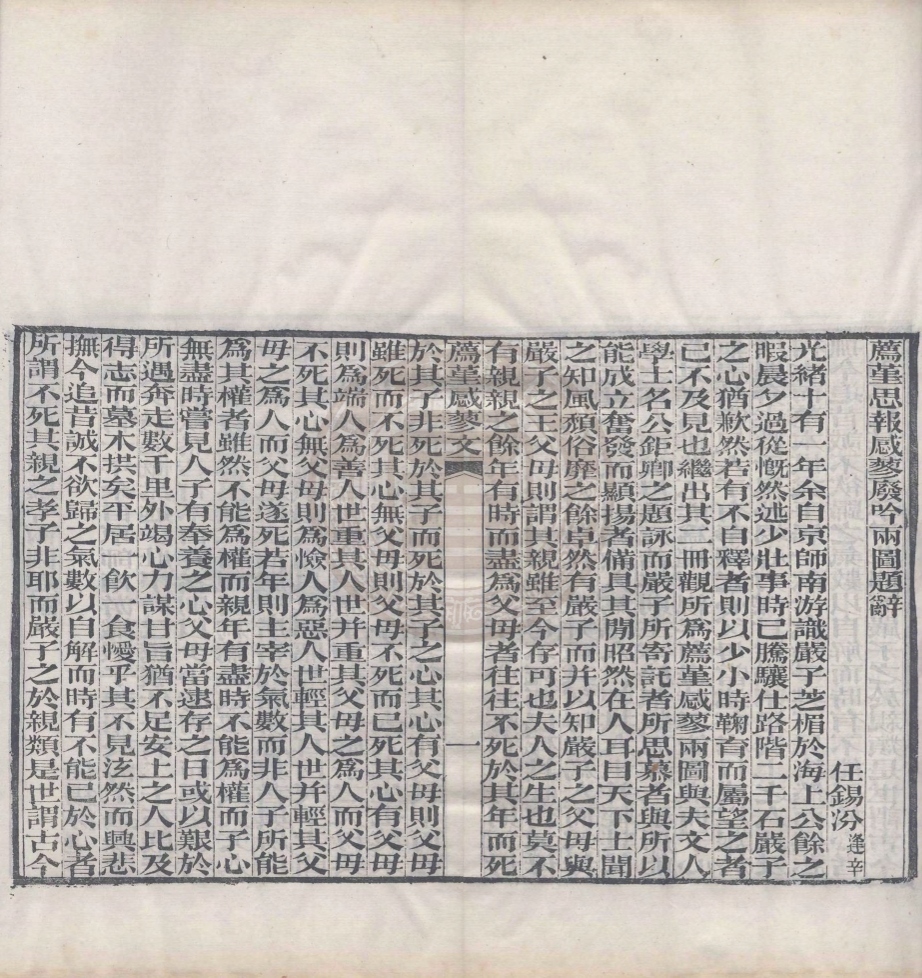 薦堇思報感蓼廢吟兩圖題辭
任錫汾逢辛
光緒十有一年余自京師南游識嚴子芝楣於海上公餘之
暇晨夕過從慨然述少壯事時已騰驤仕路階二千石嚴子
之心猶歉然若有不自釋者則以少小時鞠育而屬望之者
已不及見也繼出其一冊觀所爲薦堇感蓼兩圖與夫文人
學士名公鉅卿之題詠而嚴子所寄託者所思慕者與所以
能成立奮發而顯揚者備具其閒昭然在人耳目天下士聞
之知風頹俗靡之餘卓然有嚴子而并以知嚴子之父母與
嚴子之王父母則謂其親雖至今存可也夫人之生也莫不
有親親之餘年有時而盡爲父母者往往不死於其年而死
薦堇感蓼文
一
於其子非死於其子而死於其子之心其心有父母則父母
雖死而不死其心無父母則父母不死而已死其心有父母
則爲端人爲善人世重其人世并重其父母之爲人而父母
不死其心無父母則爲憸人爲惡人世輕其人世并輕其父
母之爲人而父母遂死若年則主宰於氣數而非人子所能
爲其權者雖然不能爲權而親年有盡時不能爲權而子心
無盡時嘗見人子有奉養之心父母當逮存之日或以艱於
所遇奔走數千里外竭心力謀甘旨猶不足安土之人比及
得志而墓木拱矣平居一飲一食懮乎其不見泫然而興悲
撫今追昔誠不欲歸之氣數以自解而時有不能已於心者
所謂不死其親之孝子非耶而嚴子之於親類是世謂古今